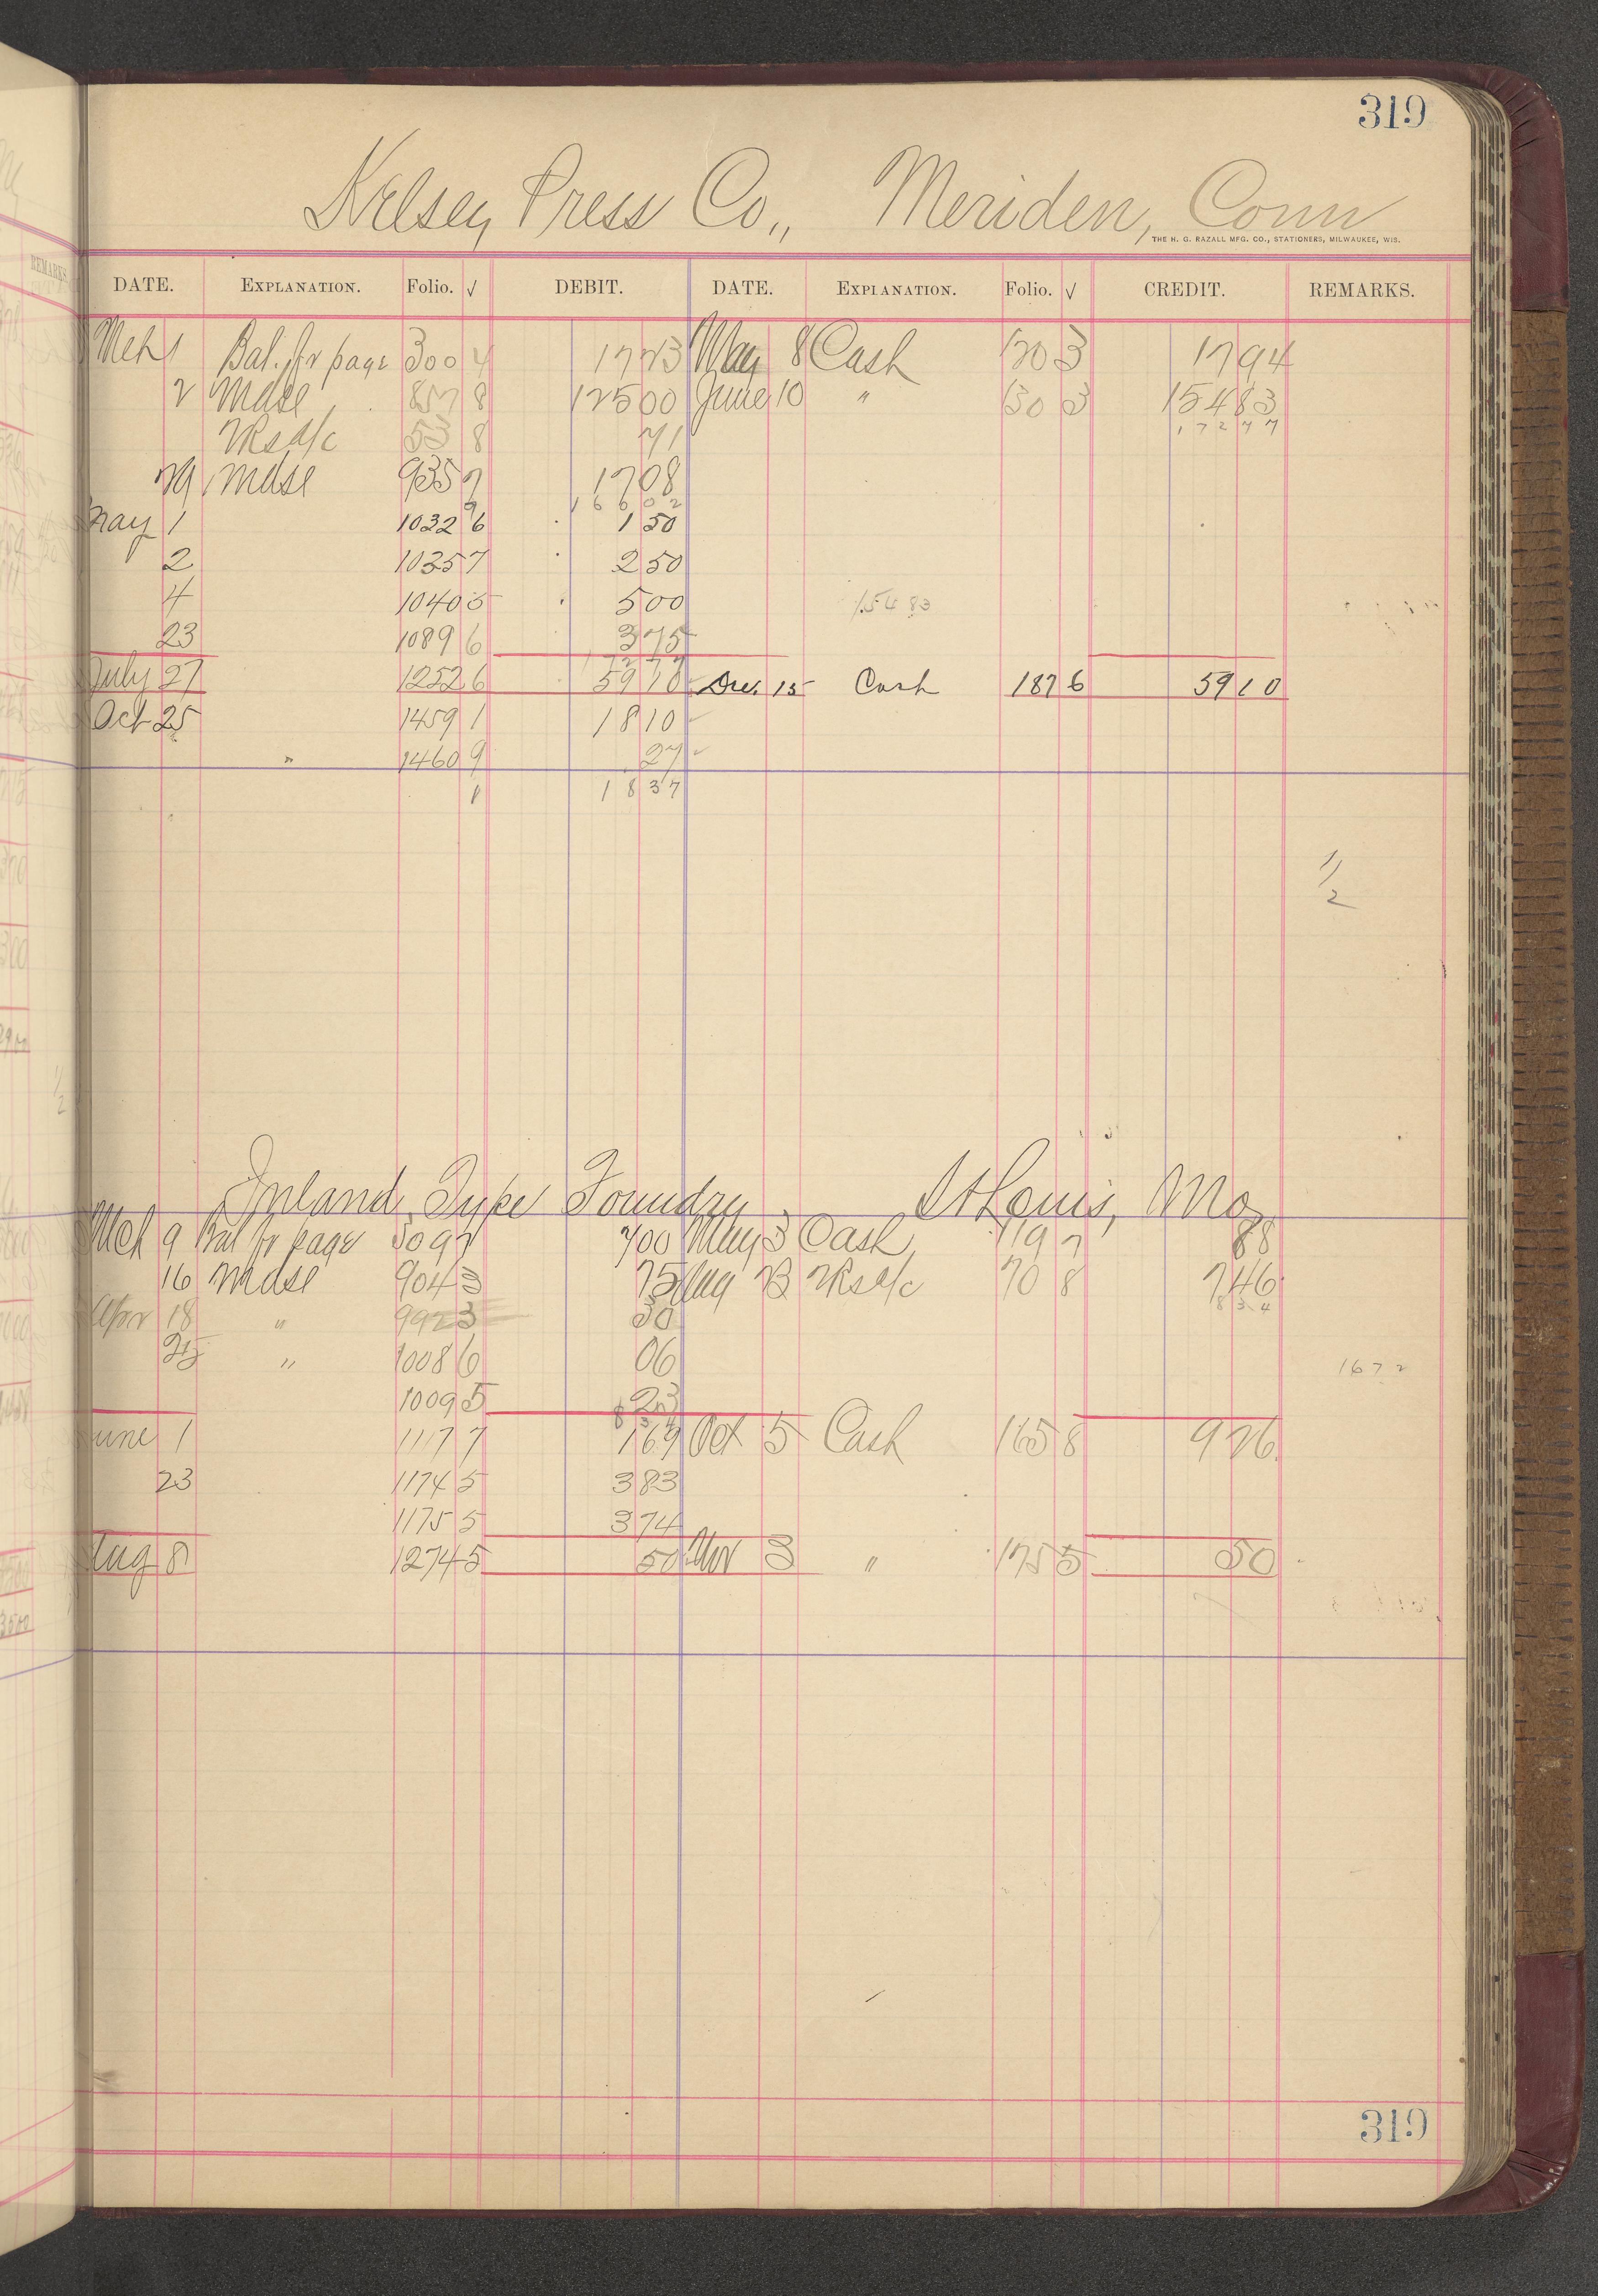 319
Kelsey Press Co., Meriden, Conn
THE H. G. RAZALL MFG. CO., STATIONERS, MILWAUKEE, WIS.
DATE. EXPLANATION. Folio. √ DEBIT. DATE. EXPLANATION. Folio. √ CREDIT. REMARKS.
Mch 1 Bal. fr page 300 4 17 23 May 8 Cash 120 3 17 94
2 Mdse 857 8 125 00 June 10 " 130 3 154 83
8 71 172 77
29 Mdse 935 7 17 08
166 02
May 1 1032 6 1 50
2 1035 7 2 50
4 1040 5 5 00 154 83
23 1089 6 3 75
July 27 1252 6 59 10 Dec. 15 Cash 187 6 59 10
Oct 25 1459 1 18 10
" 1460 9 27
18 37
1/2
Inland Type Foundry St Louis, Mo
Mch 9 Bal fr page 309 7 00 May 3 Cash 119 7 88
16 Mdse 904 3 75 Aug 70 8 7 46
8 34
Apr 18 " 992 3 30
25 " 1008 6 06 1672
1009 5 23
8 34
June 1 1117 7 1 69 Oct 5 Cash 165 8 9 26
23 1174 5 3 83
1175 5 3 74
Aug 8 1274 5 50 Nov 3 " 175 5 50
319